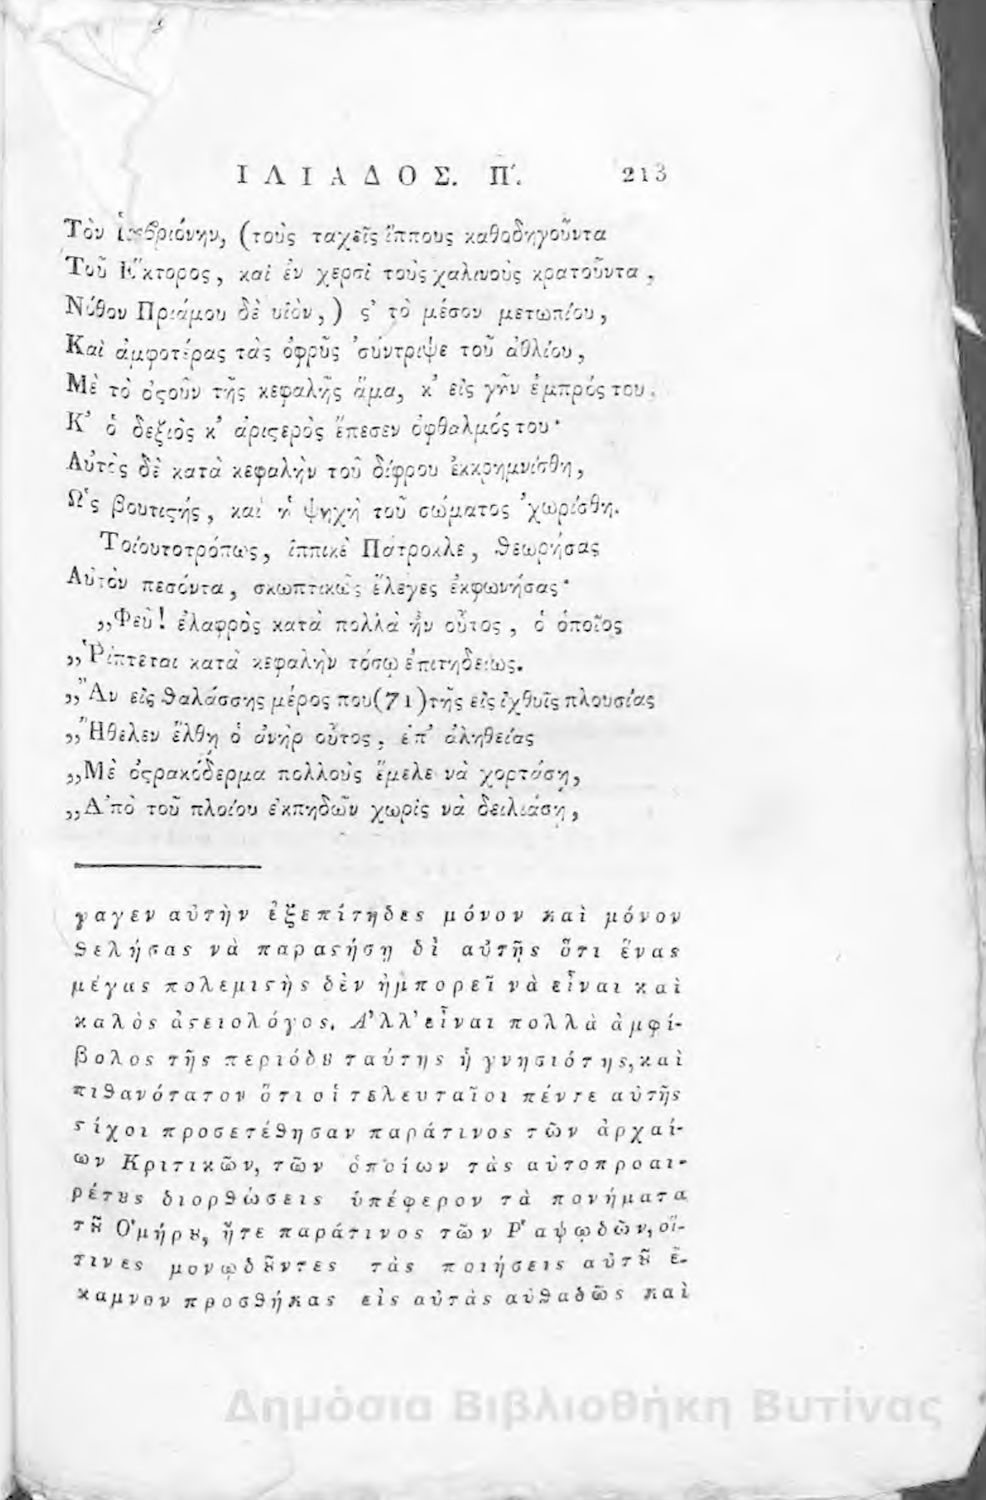 ΙΛΙΑΔΟΣ. Π΄. 213
Τὸν (τοὺς ταχεῖς ἵππους καθοδηγοῦντα
Τοῦ Ἕκτορος, καὶ ἐν χερσὶ τοὺς χαλινοὺς κρατοῦντα,
Νόθον Πριάμου δὲ υἱὸν,) ϛ' τὸ μέσον μετωπίου,
Καὶ ἀμφοτέρας τὰς ὀφρῦς 'σύντριψε τοῦ ἀθλίου,
Μὲ τὸ ὀϛοῦν τῆς κεφαλῆς ἅμα, κ' εἰς γῆν ἐμπρός του.
Κ' ὁ δεξιὸς κ' ἀριϛερὸς ἔπεσεν ὀφθαλμός του·
Αὐτὸς δὲ κατὰ κεφαλὴν τοῦ δίφρου ἐκκρημνίσθη,
Ὡς βουτιϛὴς, καὶ ἡ ψυχὴ τοῦ σώματος 'χωρίσθη.
Τοιουτοτρόπως, ἱππικὲ Πάτροκλε, ϑεωρήσας
Αὐτὸν πεσόντα, σκωπτικῶς ἔλεγες ἐκφωνήσας·
„Φεῦ! ἐλαφρὸς κατὰ πολλὰ ἦν οὗτος, ὁ ὁποῖος
„Ῥίπτεται κατὰ κεφαλὴν τόσῳ ἐπιτηδείως.
„Ἂν εἰς ϑαλάσσης μέρος που(71)τῆς εἰς ἰχθυῖς πλουσίας
„Ἤθελεν ἔλθῃ ὁ ἀνὴρ οὗτος, ἐπ' ἀληθείας
„Μὲ ὀϛρακόδερμα πολλοὺς ἔμελε νὰ χορτάσῃ,
„Ἀπὸ τοῦ πλοίου ἐκπηδῶν χωρὶς νὰ δειλιάσῃ,
γαγεν αὐτὴν ἐξεπίτηδες μόνον καὶ μόνον
ϑελήσας νὰ παραϛήσῃ δι αὐτῆς ὅτι ἕνας
μέγας πολεμιϛὴς δὲν ἠμπορεῖ νὰ εἶναι καὶ
καλὸς ἀϛειολόγος. Ἀλλ' εἶναι πολλὰ ἀμφί-
βολος τῆς περιόδȣ ταύτης ἡ γνησιότης, καὶ
πιϑανότατον ὅτι οἱ τελευταῖοι πέντε αὐτῆς
ϛίχοι προσετέϑησαν παράτινος τῶν ἀρχαί-
ων Κριτικῶν, τῶν ὁποίων τὰς αὐτοπροαι-
ρέτȣς διορϑώσεις ὑπέφερον τὰ πονήματα
τȣ͂ Ὁμήρȣ, ἤτε παράτινος τῶν Ῥαψῳδῶν, οἵ-
τινες μονῳδȣ͂ντες τὰς ποιήσεις αὐτȣ͂ ἔ-
καμνον προσϑήκας εἰς αὐτὰς αὐϑαδῶς καὶ
Δημόσια Βιβλιοθήκη Βυτίνας